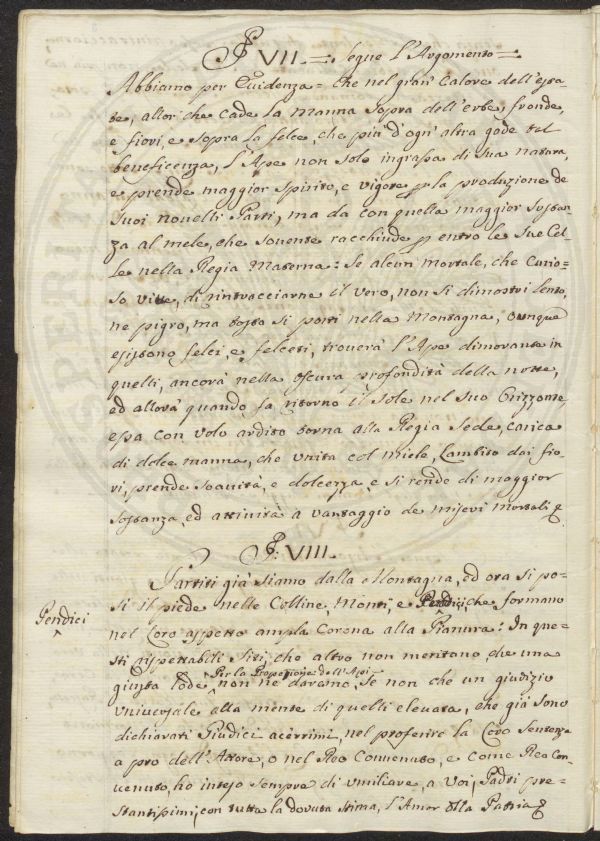 § VII. = segue l'Argomento =
Abbiamo per Evidenza = che nel gran Calore dell'esta-
te, allor che cade la Manna sopra dell'erbe, fronde,
e fiori, e sopra la felce, che più d'ogn'altra gode tal
beneficenza, l'Ape non solo ingrassa di sua natura,
e prende maggior spirito, e vigore per la produzione de
suoi novelli Parti, ma da con quella maggior sostan-
za al mele, che sovente racchiude per entro le sue Cel-
le nella Regia Materna: Se alcun Mortale, che Curio-
so vive, di rintracciarne il vero, non si dimostri lento,
ne pigro, ma tosto si porti nella Montagna, ovunque
esistono felci, e felceti, troverà l'Ape dimorante in
quelli, ancorà nella oscura profondità della notte,
ed allorà quando fa ritorno il Sole nel suo Orizzonte,
essa con volo ardito torna alla Regia Sede, carica
di dolce manna, che unita col miele, lambito dai fio-
ri, prende soavità, e dolcezza, e si rende di maggior
sostanza, ed attività a vantaggio de miseri Mortali
§. VIII.
Partiti già siamo dalla Montagna, ed ora si po-
si il piede nelle Colline, Monti, e Pendici che formano
Pendici
nel loro aspetto ampla Corona alla Pianura: In que-
sti rispettabili Siti, che altro non meritano, che una
Per la Propezione dell'Api =
giusta lode non ne daremo, se non che un giudizio
universale alla mente di quelli elevata, che già sono
dichiarati Giudici acerrimi, nel proferire la loro Sentenza
a pro dell'Attore, o nel Reo Convenuto, e come Reo Con-
venuto, ho inteso sempre di umiliare, a Voi, Padri pre-
stantissimi, con tutta la dovuta stima, l'Amor alla Patria